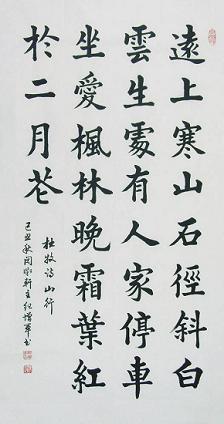 遠上寒山石徑斜白
雲生處有人家停車
坐愛楓林晚霜葉紅
於二月花
杜牧詩山行
己丑秋